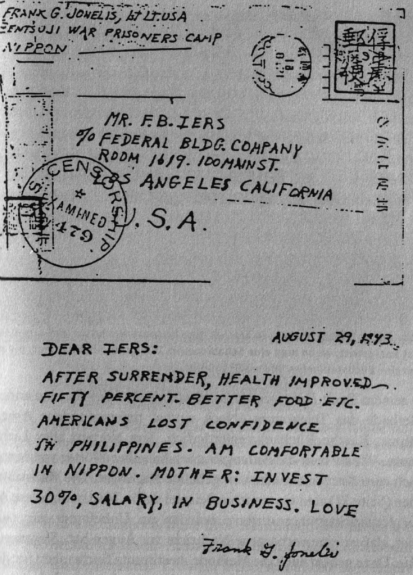 FRANK G. JONELIS, 1st LT. USA
ZENTSUJI WAR PRISONERS CAMP
NIPPON
MR. F.B. IERS
% FEDERAL BLDG. COMPANY
ROOM 1619. 100 MAIN ST.
LOS ANGELES CALIFORNIA
U.S.A.
U.S. CENSORSHIP
EXAMINED
479
AUGUST 29, 1943
DEAR IERS:
AFTER SURRENDER, HEALTH IMPROVED
FIFTY PERCENT. BETTER FOOD ETC.
AMERICANS LOST CONFIDENCE
IN PHILIPPINES. AM COMFORTABLE
IN NIPPON. MOTHER: INVEST
30%, SALARY, IN BUSINESS. LOVE
Frank G. Jonelis